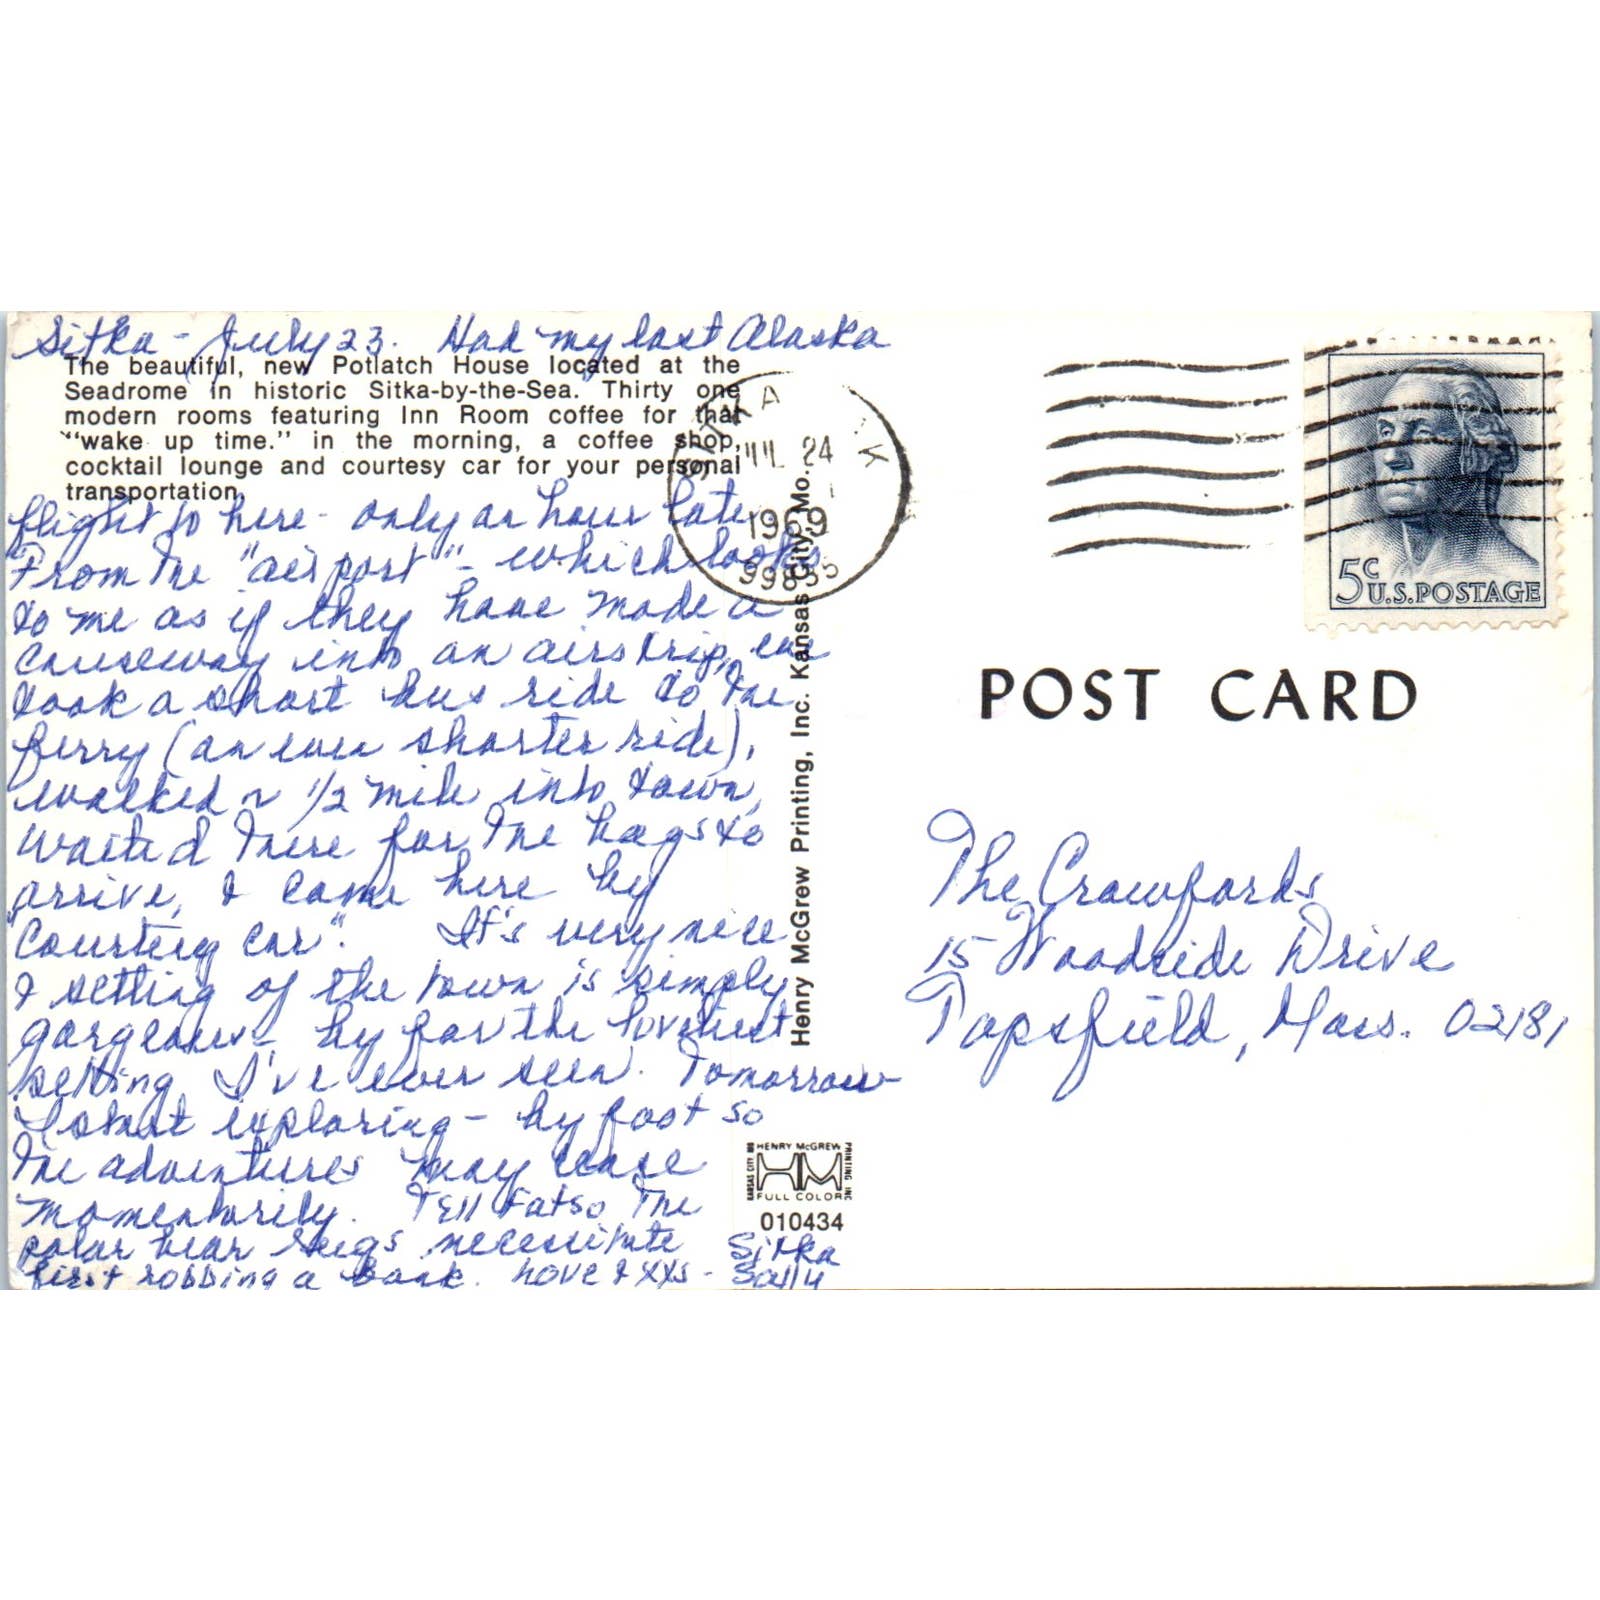 Sitka - July 23. Had my last Alaska
The beautiful, new Potlatch House located at the
Seadrome in historic Sitka-by-the-Sea. Thirty one
modern rooms featuring Inn Room coffee for that
"wake up time." in the morning, a coffee shop,
cocktail lounge and courtesy car for your personal
transportation.
flight to here - only an hour late.
From the "airport" - which looks
to me as if they have made a
causeway into an airstrip, we
took a short bus ride to the
ferry (an even shorter ride),
walked ~ 1/2 mile into town,
waited there for the bags to
arrive, & came here by
"Courtesy Car". It's very nice
& setting of the town is simply
gorgeous - by far the loveliest
setting I've ever seen. Tomorrow
I start exploring - by foot so
the adventures may cease
momentarily. Tell Fatso the
polar bear rugs necessitate
first robbing a bank. Love & XXs -
Sitka
Sally
SITKA AK
JUL 24
1969
99835
Henry McGrew Printing, Inc. Kansas City, Mo.
HENRY McGREW
PRINTING INC
KANSAS CITY MO
HM
FULL COLOR
010434
5c
U.S. POSTAGE
POST CARD
The Crawfords
15 Woodside Drive
Topsfield, Mass. 02181